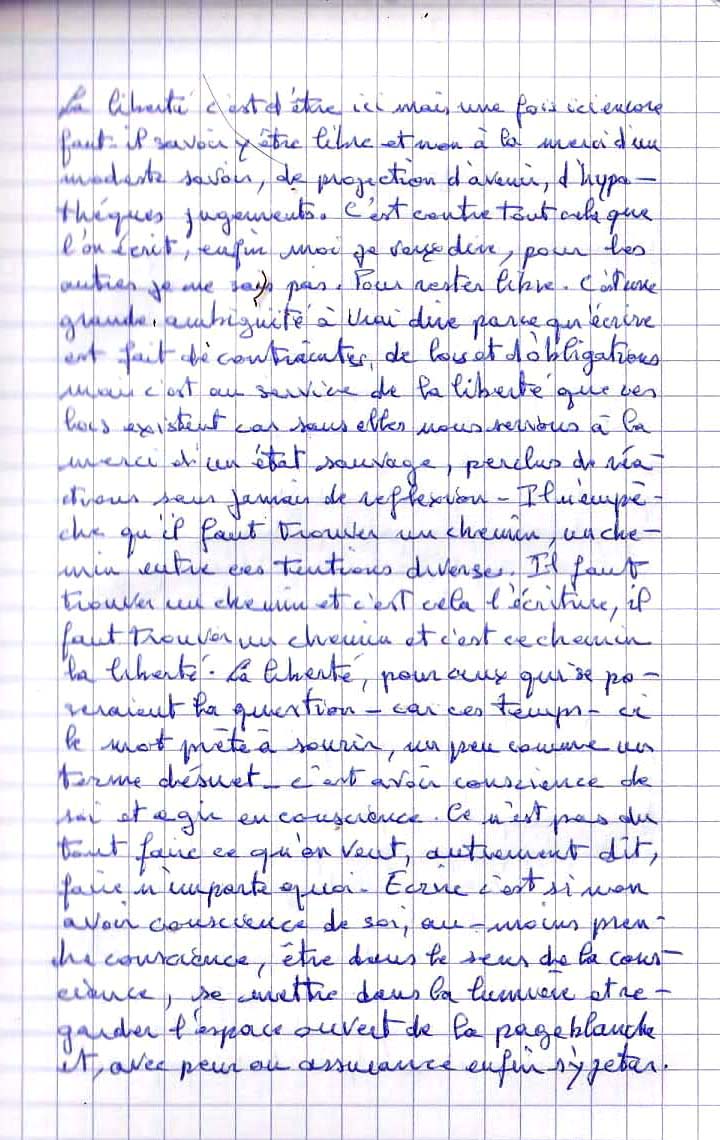 La liberté c'est d'être ici mais, une fois ici encore
faut-il savoir y être libre et non à la merci d'un
modeste savoir, de projection d'avenir, d'hypo-
théques jugements. C'est contre tout cela que
l'on écrit, enfin moi je veux dire, pour les
autres je ne sais pas. Pour rester libre. C'est une
grande ambiguité à vrai dire parce qu'écrire
est fait de contraintes, de lois et d'obligations
mais c'est au service de la liberté que ces
lois existent car sans elles nous serions à la
merci d'un état sauvage, perclus de réa-
ctions sans jamais de reflexion - Il n'empê-
che qu'il faut trouver un chemin, un che-
min entre ces tentions diverses. Il faut
trouver un chemin et c'est cela l'écriture, il
faut trouver un chemin et c'est ce chemin
la liberté. La liberté, pour ceux qui se po-
seraient la question - car ces temps-ci
le mot prête à sourir, un peu comme un
terme désuet - c'est avoir conscience de
soi et agir en conscience. Ce n'est pas du
tout faire ce qu'on veut, autrement dit,
faire n'importe quoi. Ecrire c'est sinon
avoir conscience de soi, au-moins pren-
dre conscience, être dans le sens de la cons-
cience, se mettre dans la lumière et re-
garder l'espace ouvert de la page blanche
et, avec peur ou assurance enfin s'y jeter.